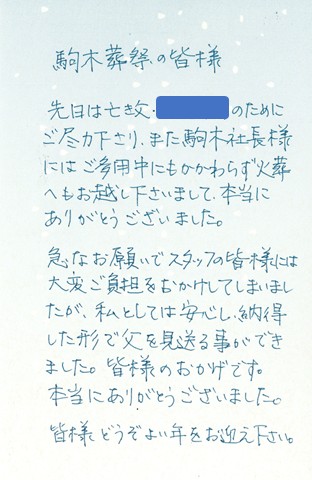 駒木葬祭の皆様
先日は亡き父・
のために
ご尽力下さり、また駒木社長様
にはご多用中にもかかわらず火葬
へもお越し下さいまして、本当に
ありがとうございました。
急なお願いでスタッフの皆様には
大変ご負担をおかけしてしまいまし
たが、私としては安心し、納得
した形で父を見送る事ができ
ました。皆様のおかげです。
本当にありがとうございました。
皆様どうぞよい年をお迎え下さい。